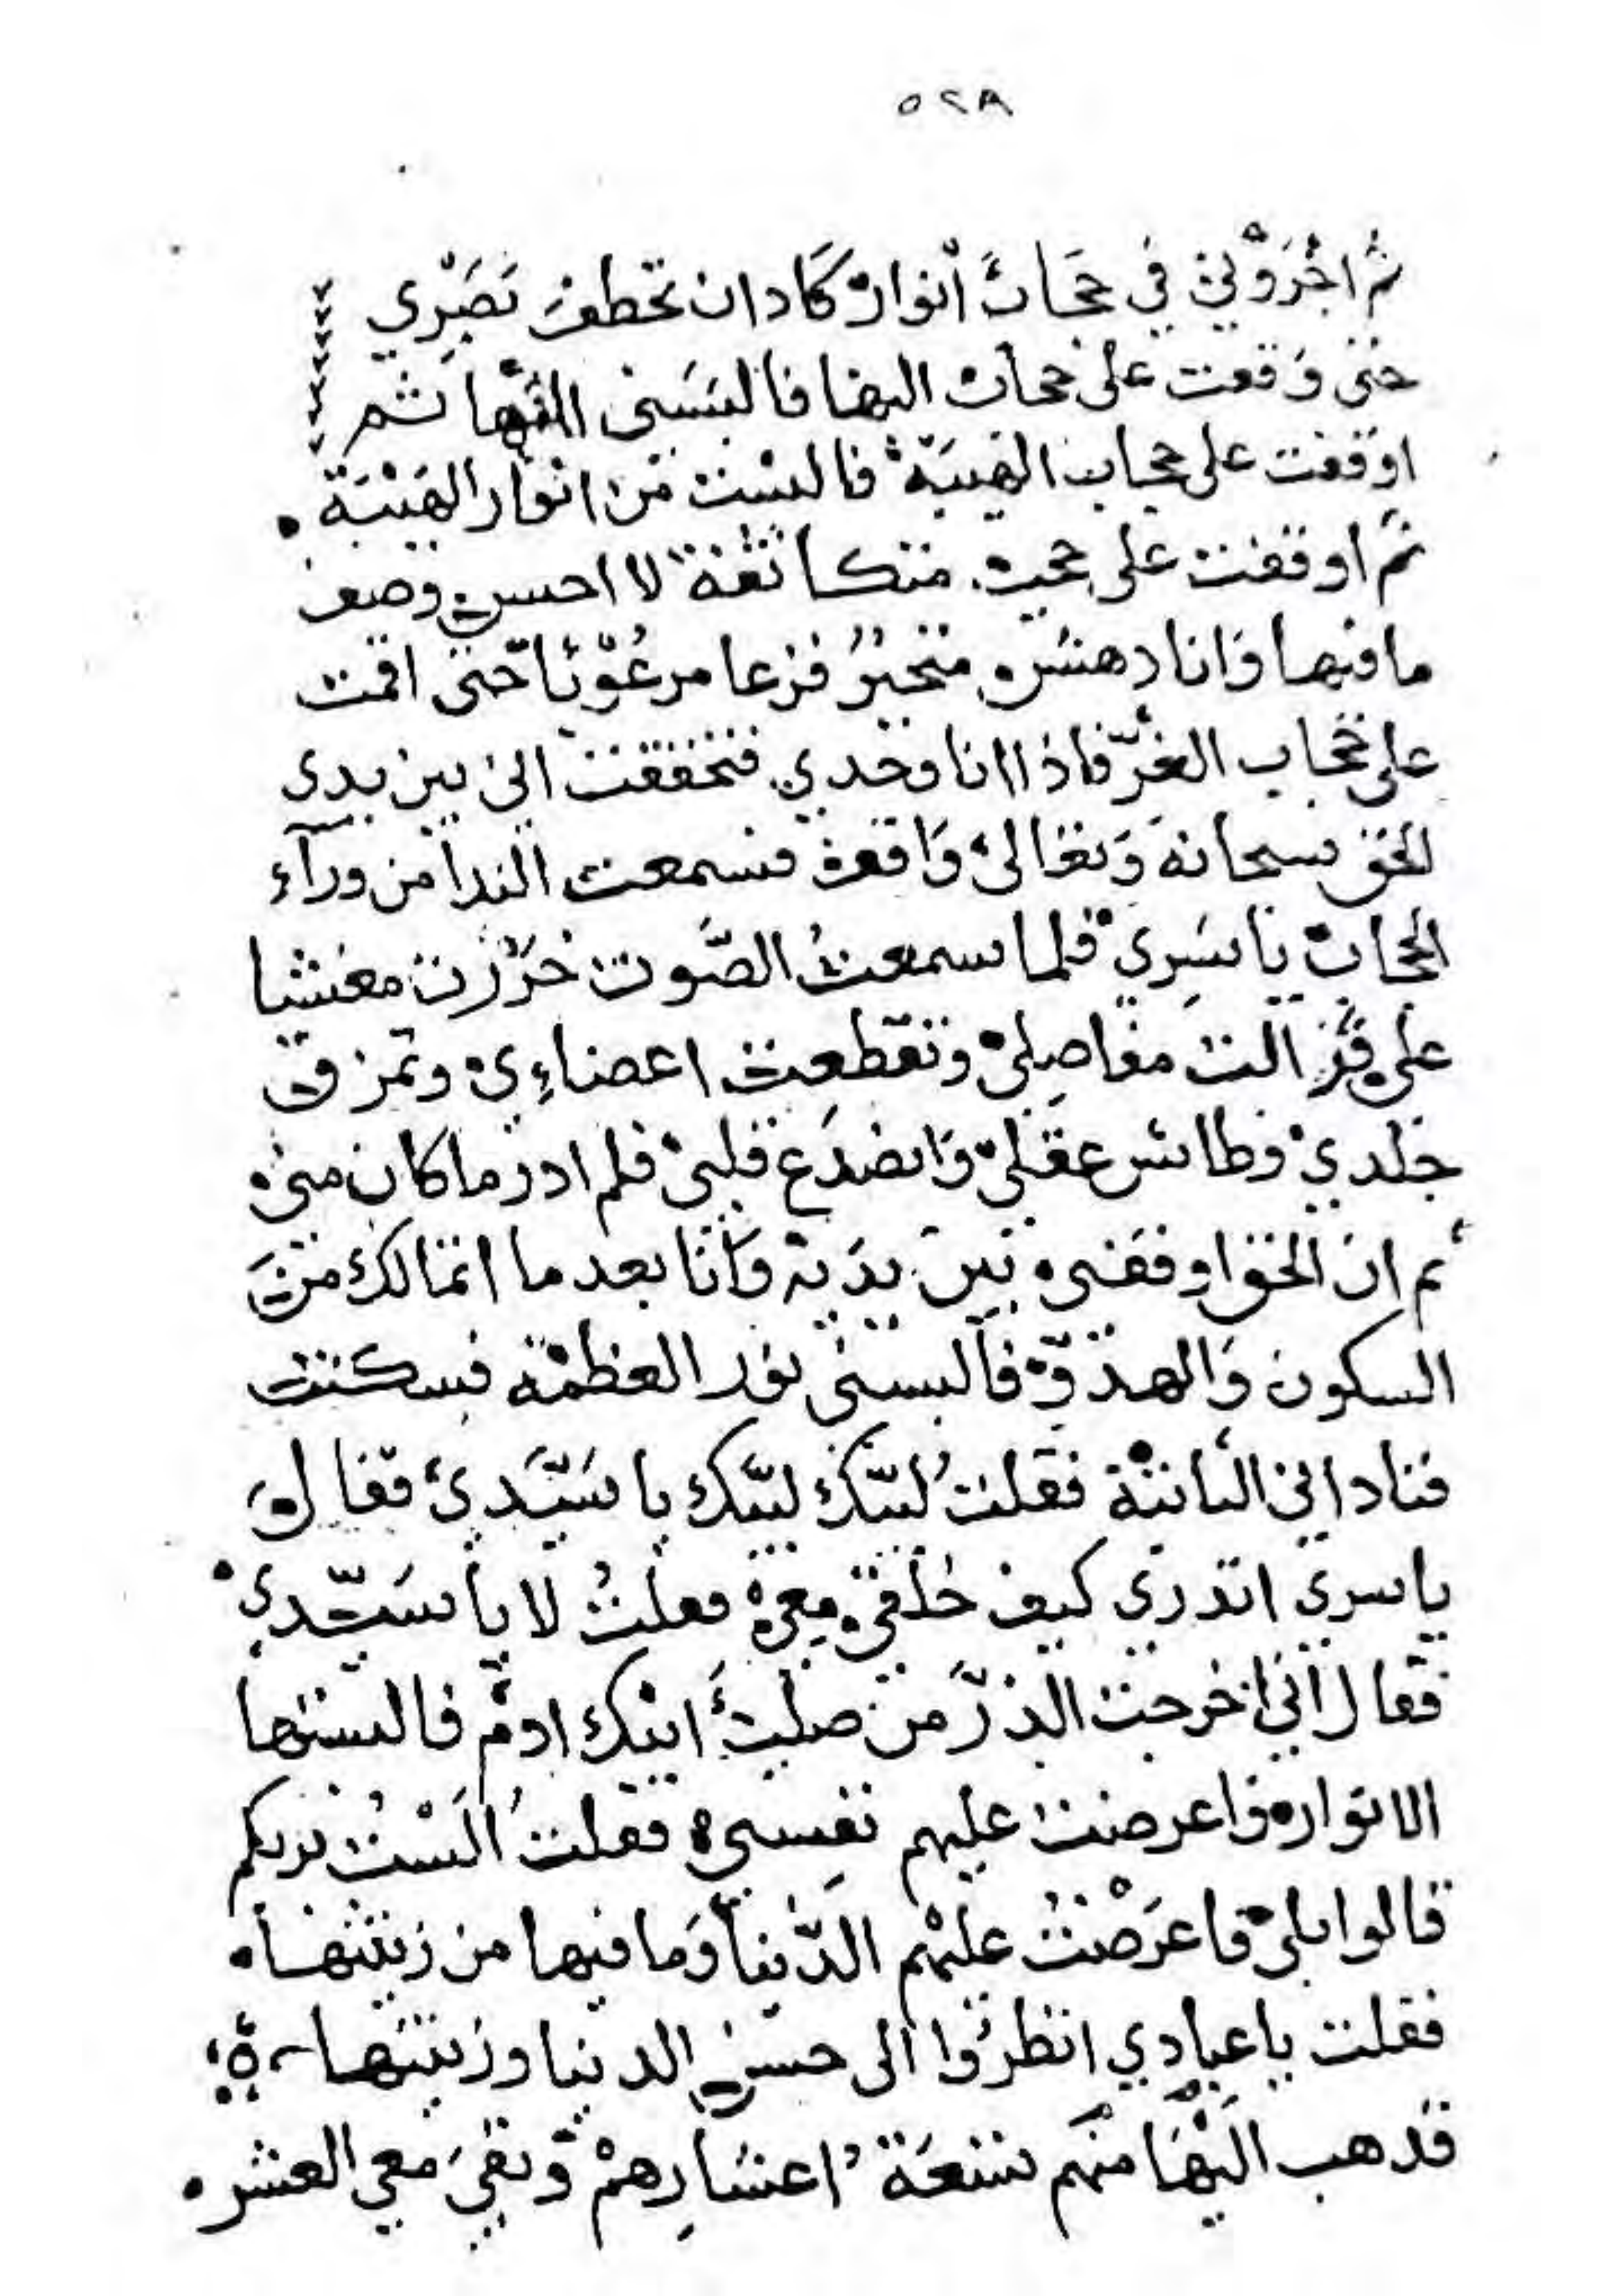 ٥٢٨
ثم اجروني في حجاب أنوار كاد ان تخطف بصري
حتى وقعت على حجاب البها فالبسني البها ثم
اوقفت على حجاب الهيبة فالبست من انوار الهيبة
ثم اوقفت على حجب متكاثفة لا احسن وصف
ما فيها وانا دهش متحير فزعا مرعوبا حتى اقمت
على حجاب العز فاذا انا وحدي فتحققت اني بين يدى
الحق سبحانه وتعالى واقف فسمعت الندا من ورآء
الحجاب يا سري فلما سمعت الصوت خررت مغشيا
على فزالت مفاصلي وتقطعت اعضاءي وتمزق
جلدي وطاش عقلي وانصدع قلبي فلم ادر ما كان مني
ثم ان الحق اوقفني بين يديه وانا بعد ما اتمالك من
السكون والهدو فالبسني نور العظمة فسكنت
فناداني الثانية فقلت لبيك لبيك يا سيدي فقال
يا سري اتدري كيف خلقي معي فقلت لا يا سيدي
فقال اني اخرجت الذر من صلب ابيك ادم فالبستها
الانوار واعرضت عليهم نفسي فقلت ألست بربكم
قالوا بلى فاعرضت عليهم الدنيا وما فيها من زينتها
فقلت يا عبادي انظروا الى حسن الدنيا وزينتها
فذهب اليها منهم تسعة اعشارهم وبقي معي العشر